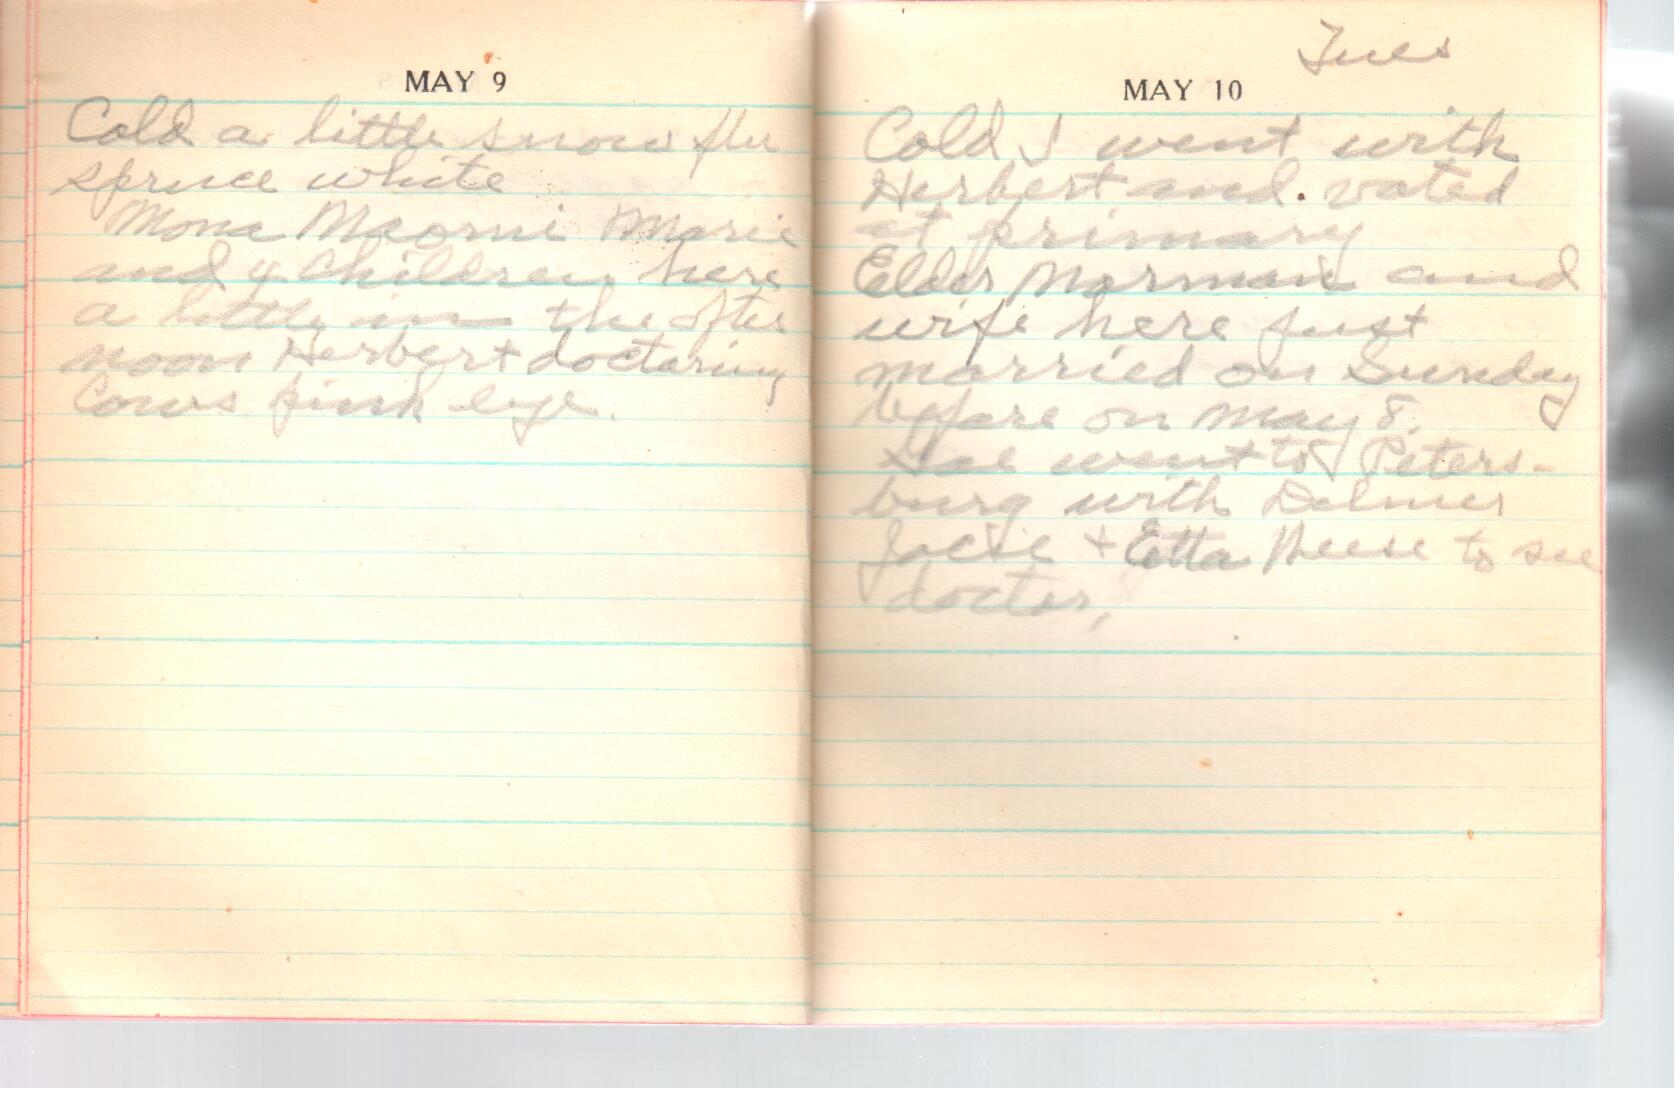 MAY 9
Cold a little snow flu
spruce white
Mona Maorni Marie
and 4 children here
a little in the after
noon Herbert doctoring
Cows pink eye.
Tues
MAY 10
Cold I went with
Herbert and voted
at primary
Elder Norman and
wife here just
married on Sunday
before on May 8.
went to Peters-
burg with Delmer
& Etta Reese to see
doctor,